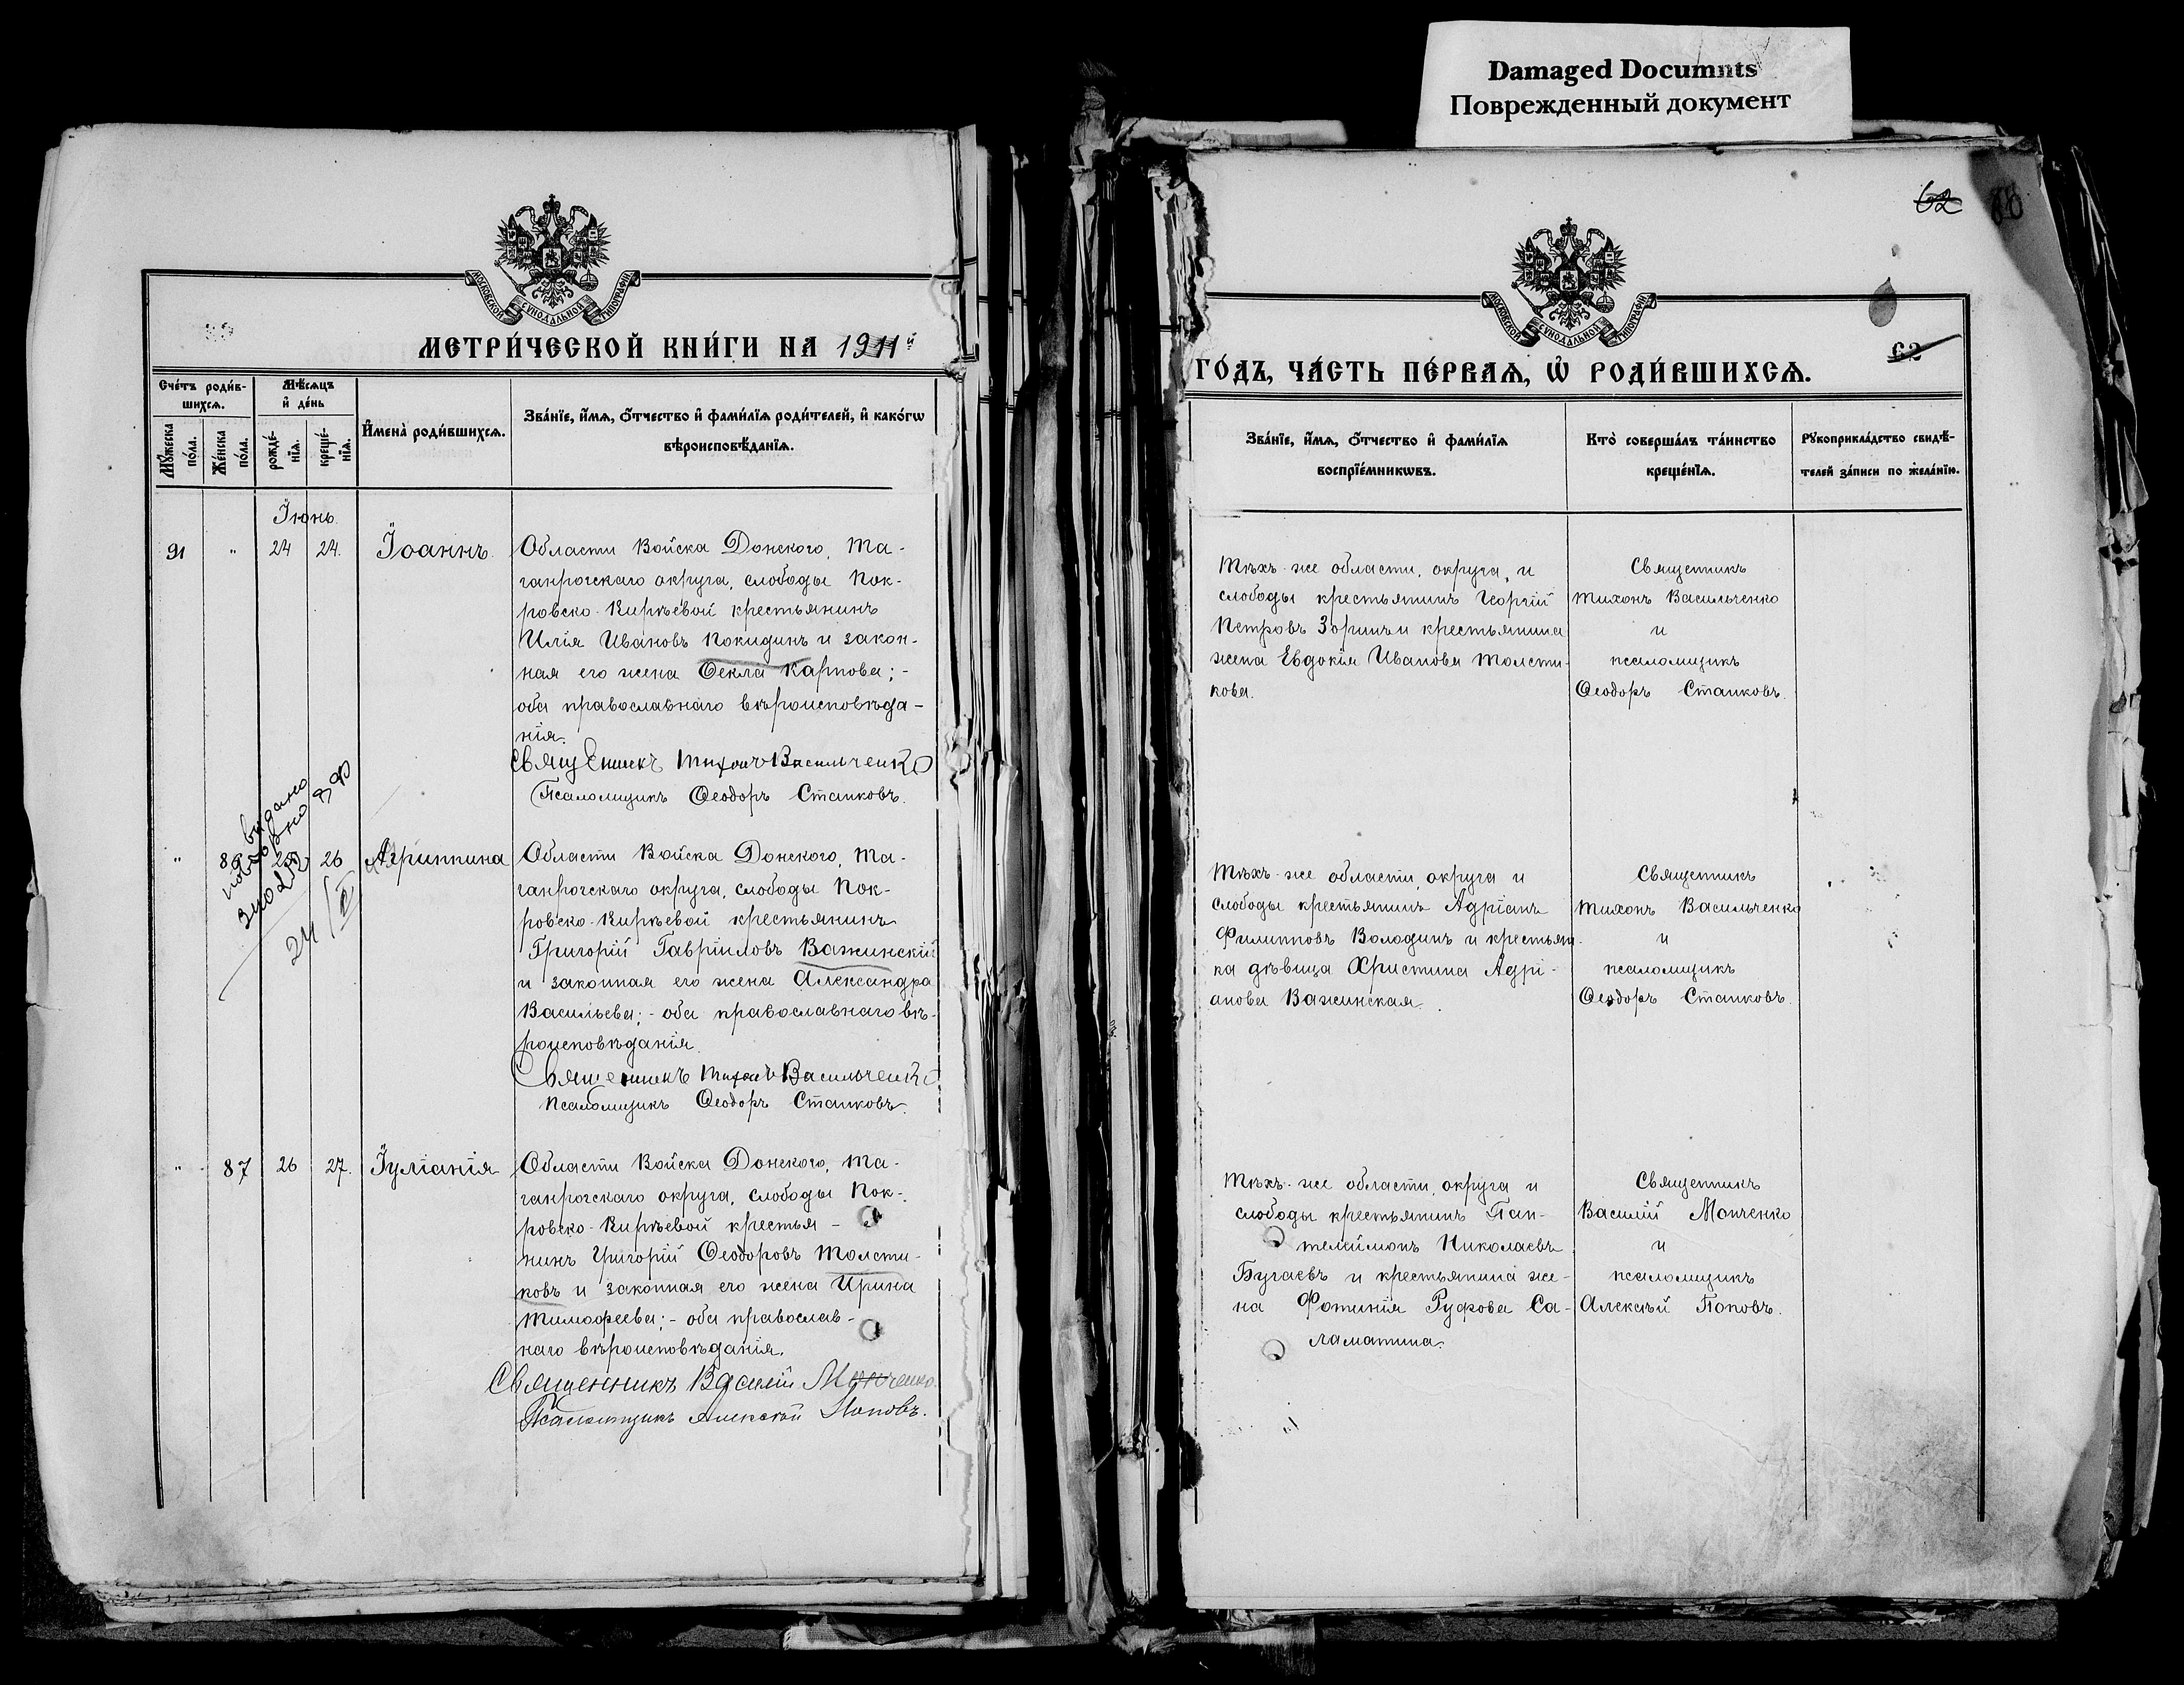 Damaged Documnts
Поврежденный документ
62 88
МОСКОВСКОЙ СѴНОДАЛЬНОЙ ТИПОГРАФІИ
МЕТРИ́ЧЕСКОЙ КНИ́ГИ НА 1911й
Сче́тъ роди́в-
шихсѧ.
Мꙋ́жеска по́ла.
Же́нска по́ла.
Мѣ́сѧцъ
и҆ де́нь
рожде́-
нїѧ.
креще́-
нїѧ.
И҆мена̀ роди́вшихсѧ.
Зва́нїе, и҆́мѧ, ѻ҆́тчество и҆ фами́лїѧ роди́телей, и҆ како́гѡ
вѣроисповѣ́данїѧ.
Іюнь.
91 " 24 24. Іоаннъ.
Области Войска Донского, Та-
ганрогскаго округа, слободы Пок-
ровско-Кирѣевой крестьянинъ
Илія Ивановъ Покидинъ и закон-
ная его жена Ѳекла Карпова; -
оба православнаго вѣроисповѣда-
нія.
Священникъ Тихонъ Васильченко
Псаломщикъ Ѳеодоръ Станковъ.
выдано
24/
" 86 26 Агриппина
Области Войска Донского, Та-
ганрогскаго округа, слободы Пок-
ровско-Кирѣевой крестьянинъ
Григорій Гавріиловъ Важинскій
и законная его жена Александра
Васильева; - оба православнаго вѣ-
роисповѣданія.
Священникъ Тихонъ Васильченко
Псаломщикъ Ѳеодоръ Станковъ.
" 87 26 27. Іуліанія
Области Войска Донского, Та-
ганрогскаго округа, слободы Пок-
ровско-Кирѣевой крестья-
нинъ Григорій Ѳеодоровъ Толсти-
ковъ и законная его жена Ирина
Тимофеева; - оба православ-
наго вѣроисповѣданія.
Священникъ Василій Мопченко.
Псаломщикъ Алексѣй Поповъ.
МОСКОВСКОЙ СѴНОДАЛЬНОЙ ТИПОГРАФІИ
62
ГО́ДЪ, ЧА́СТЬ ПЕ́РВАѦ, Ѽ РОДИ́ВШИХСѦ.
Зва́нїе, и҆́мѧ, ѻ҆́тчество и҆ фами́лїѧ
воспрїе́мникѡвъ.
Кто̀ соверша́лъ та́инство
креще́нїѧ.
Рꙋкоприкла́дство свидѣ́-
телей за́писи по жела́нїю.
Тѣхъ-же области, округа, и
слободы крестьянинъ Георгій
Петровъ Зоринъ и крестьянина
жена Евдокія Иванова Толсти-
кова.
Священникъ
Тихонъ Васильченко
и
псаломщикъ
Ѳеодоръ Станковъ.
Тѣхъ-же области, округа и
слободы крестьянинъ Адріанъ
Филипповъ Володинъ и крестьян-
ка дѣвица Христина Адрі-
анова Важинская.
Священникъ
Тихонъ Васильченко
и
псаломщикъ
Ѳеодоръ Станковъ.
Тѣхъ-же области, округа и
слободы крестьянинъ Пан-
телеймонъ Николаевъ
Бугаевъ и крестьянина же-
на Фотинія Руфова Са-
ламатина.
Священникъ
Василій Мопченко
и
псаломщикъ
Алексѣй Поповъ.